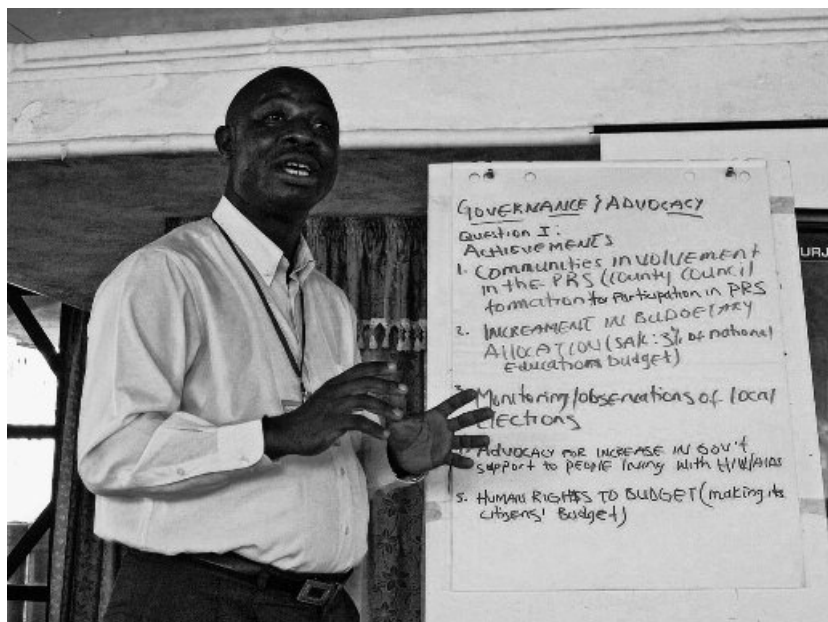 GOVERNANCE & ADVOCACY
QUESTION I:
ACHIEVEMENTS
1. COMMUNITIES INVOLVEMENT
IN THE PRS (COUNTY COUNCIL
formation for participation in PRS
2. INCREAMENT IN BUDGETARY
ALLOCATION (SAK: 3% of national
Education budget)
Monitoring/observations of local
Elections
ADVOCACY FOR INCREASE IN GOV'T
support to PEOPLE living with HIV/AIDS
5. HUMAN RIGHTS TO BUDGET (making its
citizens' Budget)
URJ